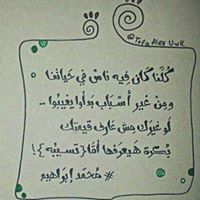 كُلنا كان فيه ناس في حياتنا
ومن غير أسباب بدأوا يغيبوا ..
لو غيرك مش عارف قيمتك
بُكرة هيعرفها أما تسيبه !
# محمد إبراهيم